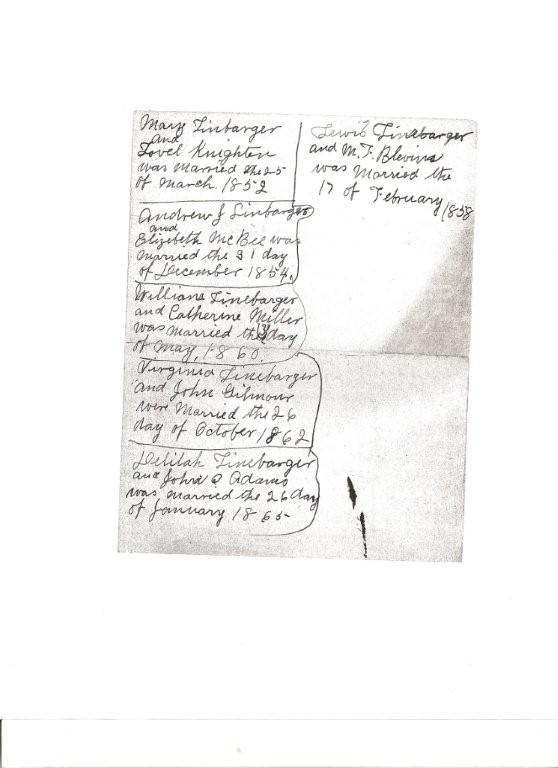 Mary Linbarger
and
Lovel Knighten
was Married the 25
of March. 1852
Andrew J Linbarger
and
Elizebeth McBee was
married the 31 day
of December 1854.
William Linebarger
and Catherine Miller
was married the 3 day
of May, 1860.
Virginia Linebarger
and John Gilmour
were Married the 26
day of October 1862
Delilah Linebarger
and John Q Adams
was married the 26 day
of January 1865
Lewis Linebarger
and M. F. Blevins
was Married the
17 of February 1858